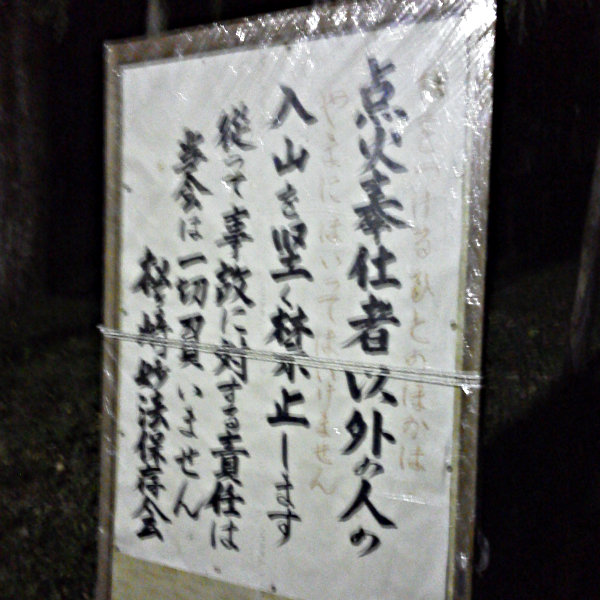 をつけるひとのほかは
点火奉仕者以外の人の
やまにはいってはいけません
入山を堅く禁止します
従って事故に対する責任は
当会は一切負いません
松ヶ崎妙法保存会